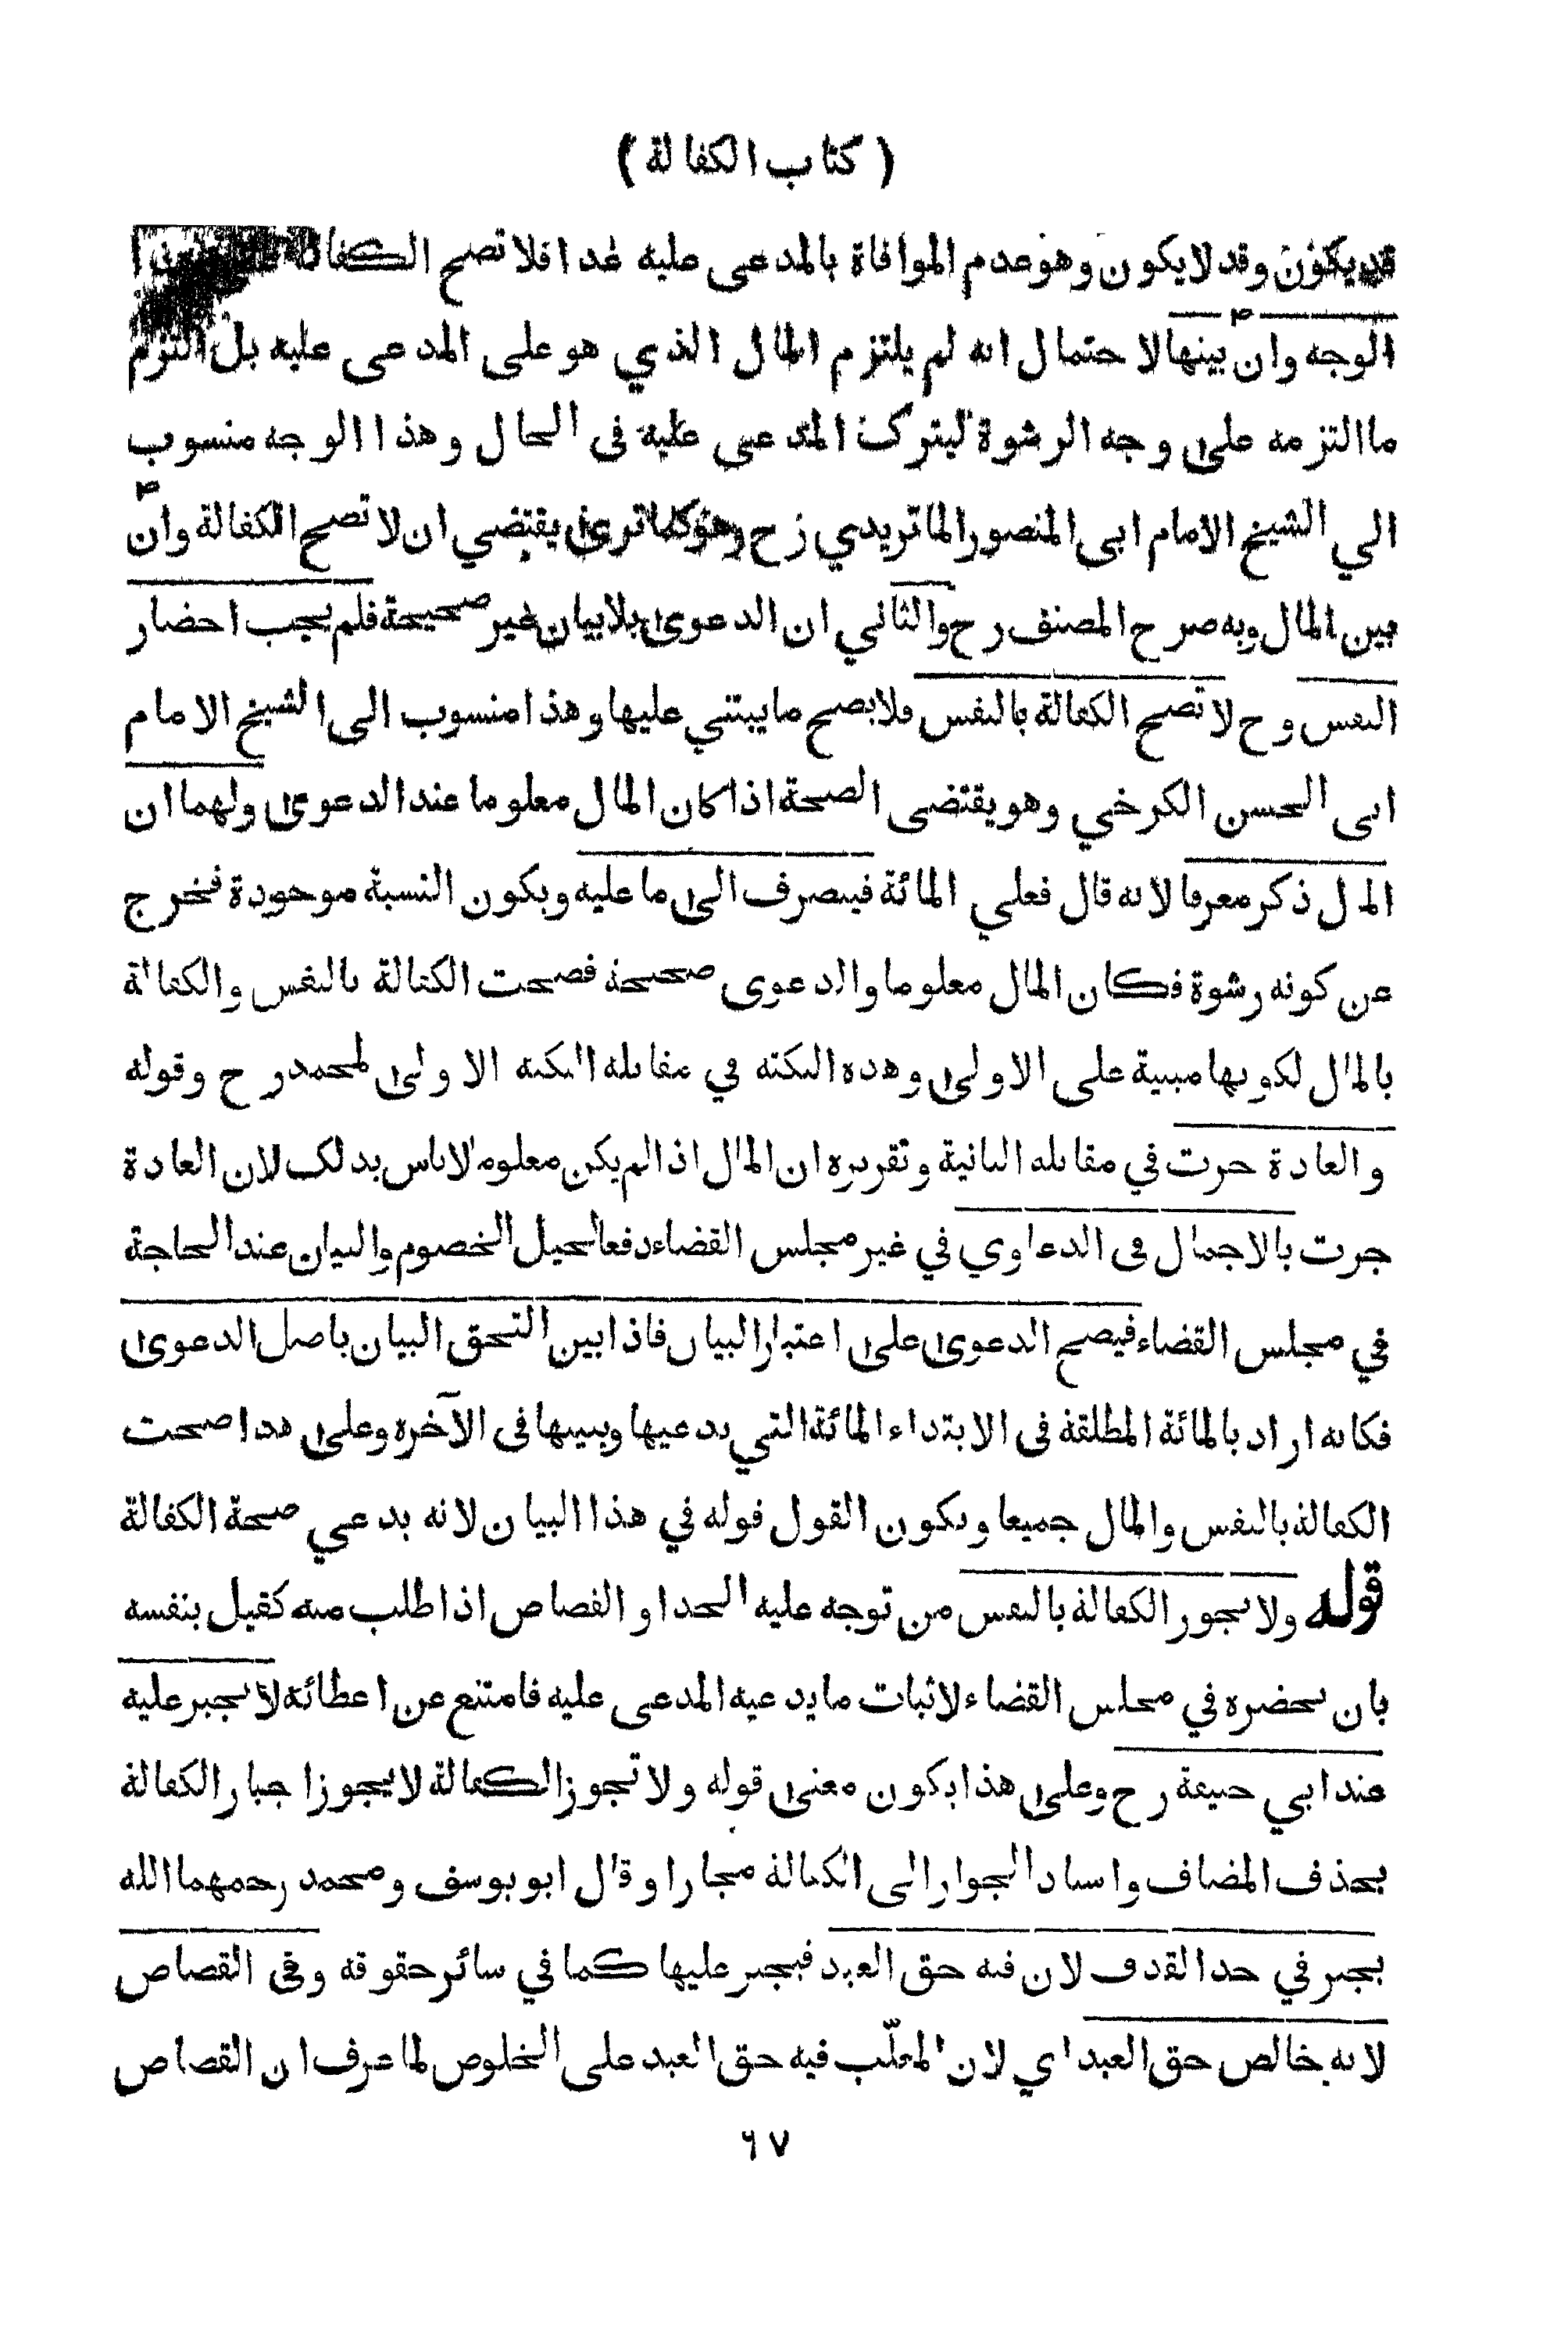 ( كتاب الكفالة )
قد يكون وقد لا يكون وهو عدم الموافاة بالمدعى عليه غدا فلا تصح الكفالة
الوجه وان بينها لاحتمال انه لم يلتزم المال الذي هو على المدعى عليه بل التزم
ما التزمه على وجه الرشوة ليترك المدعى عليه في الحال وهذا الوجه منسوب
الي الشيخ الامام ابي المنصور الماتريدي رح وهو كما ترى يقتضي ان لا تصح الكفالة وان
بين المال وبه صرح المصنف رح والثاني ان الدعوى بلا بيان غير صحيحة فلم يجب احضار
النفس وح لا تصح الكفالة بالنفس فلا يصح ما يبتني عليها وهذا منسوب الى الشيخ الامام
ابي الحسن الكرخي وهو يقتضى الصحة اذا كان المال معلوما عند الدعوى ولهما ان
المال ذكر معرفا لانه قال فعلي المائة فينصرف الى ما عليه ويكون النسبة موجودة فخرج
عن كونه رشوة فكان المال معلوما والدعوى صحيحة فصحت الكفالة بالنفس والكفالة
بالمال لكونها مبنية على الاولى وهذه النكتة في مقابلة النكتة الاولى لمحمد رح وقوله
والعادة جرت في مقابلة الثانية وتقريره ان المال اذا لم يكن معلوما لاباس بذلك لان العادة
جرت بالاجمال في الدعاوي في غير مجلس القضاء دفعا لحيل الخصوم والبيان عند الحاجة
في مجلس القضاء فيصح الدعوى على اعتبار البيان فاذا بين التحق البيان باصل الدعوى
فكانه اراد بالمائة المطلقة في الابتداء المائة التي يدعيها وبينها في الآخرة وعلى هذا صحت
الكفالة بالنفس والمال جميعا ويكون القول قوله في هذا البيان لانه يدعي صحة الكفالة
قوله ولا يجوز الكفالة بالنفس من توجه عليه الحد او القصاص اذا طلب منه كفيل بنفسه
بان يحضره في مجلس القضاء لاثبات ما يدعيه المدعى عليه فامتنع عن اعطائه لا يجبر عليه
عند ابي حنيفة رح وعلى هذا يكون معنى قوله ولا تجوز الكفالة لا يجوز اجبار الكفالة
بحذف المضاف واسناد الجواز الى الكفالة مجازا وقال ابو يوسف ومحمد رحمهما الله
يجبر في حد القذف لان فيه حق العبد فيجبر عليها كما في سائر حقوقه وفي القصاص
لانه خالص حق العبد اي لان المغلّب فيه حق العبد على الخلوص لما عرف ان القصاص
٦٧